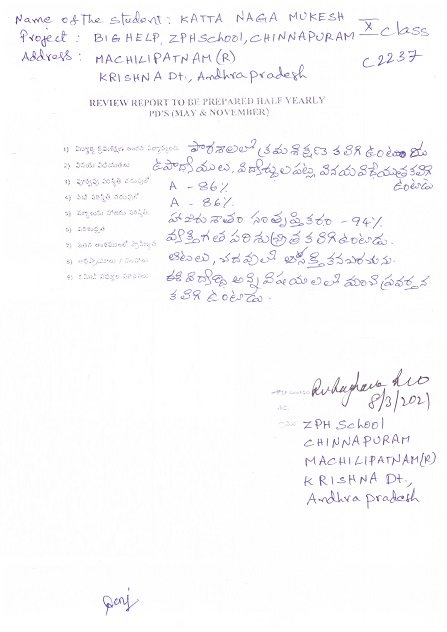 Name of the student: KATTA NAGA MUKESH X class
Project : BIG HELP, ZPH School, CHINNAPURAM
Address: MACHILIPATNAM (R) C2237
KRISHNA Dt., Andhra pradesh
REVIEW REPORT TO BE PREPARED HALF YEARLY
PD'S (MAY & NOVEMBER)
1) విద్యార్థి క్రమశిక్షణ పాఠశాలలో క్రమశిక్షణ కలిగి ఉంటాడు
2) వినయ విధేయతలు ఉపాధ్యాయులు, విద్యార్థుల పట్ల వినయవిధేయత కలిగి ఉంటుడు
3) A - 86%
4) A - 86%
5) హాజరు శాతం సంతృప్తికరం - 94%
6) పరిశుభ్రత వ్యక్తిగత పరిశుభ్రత కలిగి ఉంటుడు.
7) ఆటలు, చదువులో ఆసక్తి కనబరచును.
8) ఈ విద్యార్థి అన్ని విషయాలలో మంచి ప్రవర్తన
9) కలిగి ఉంటుడు.
8/3/2021
ZPH School
CHINNAPURAM
MACHILIPATNAM(R)
KRISHNA Dt.,
Andhra pradesh